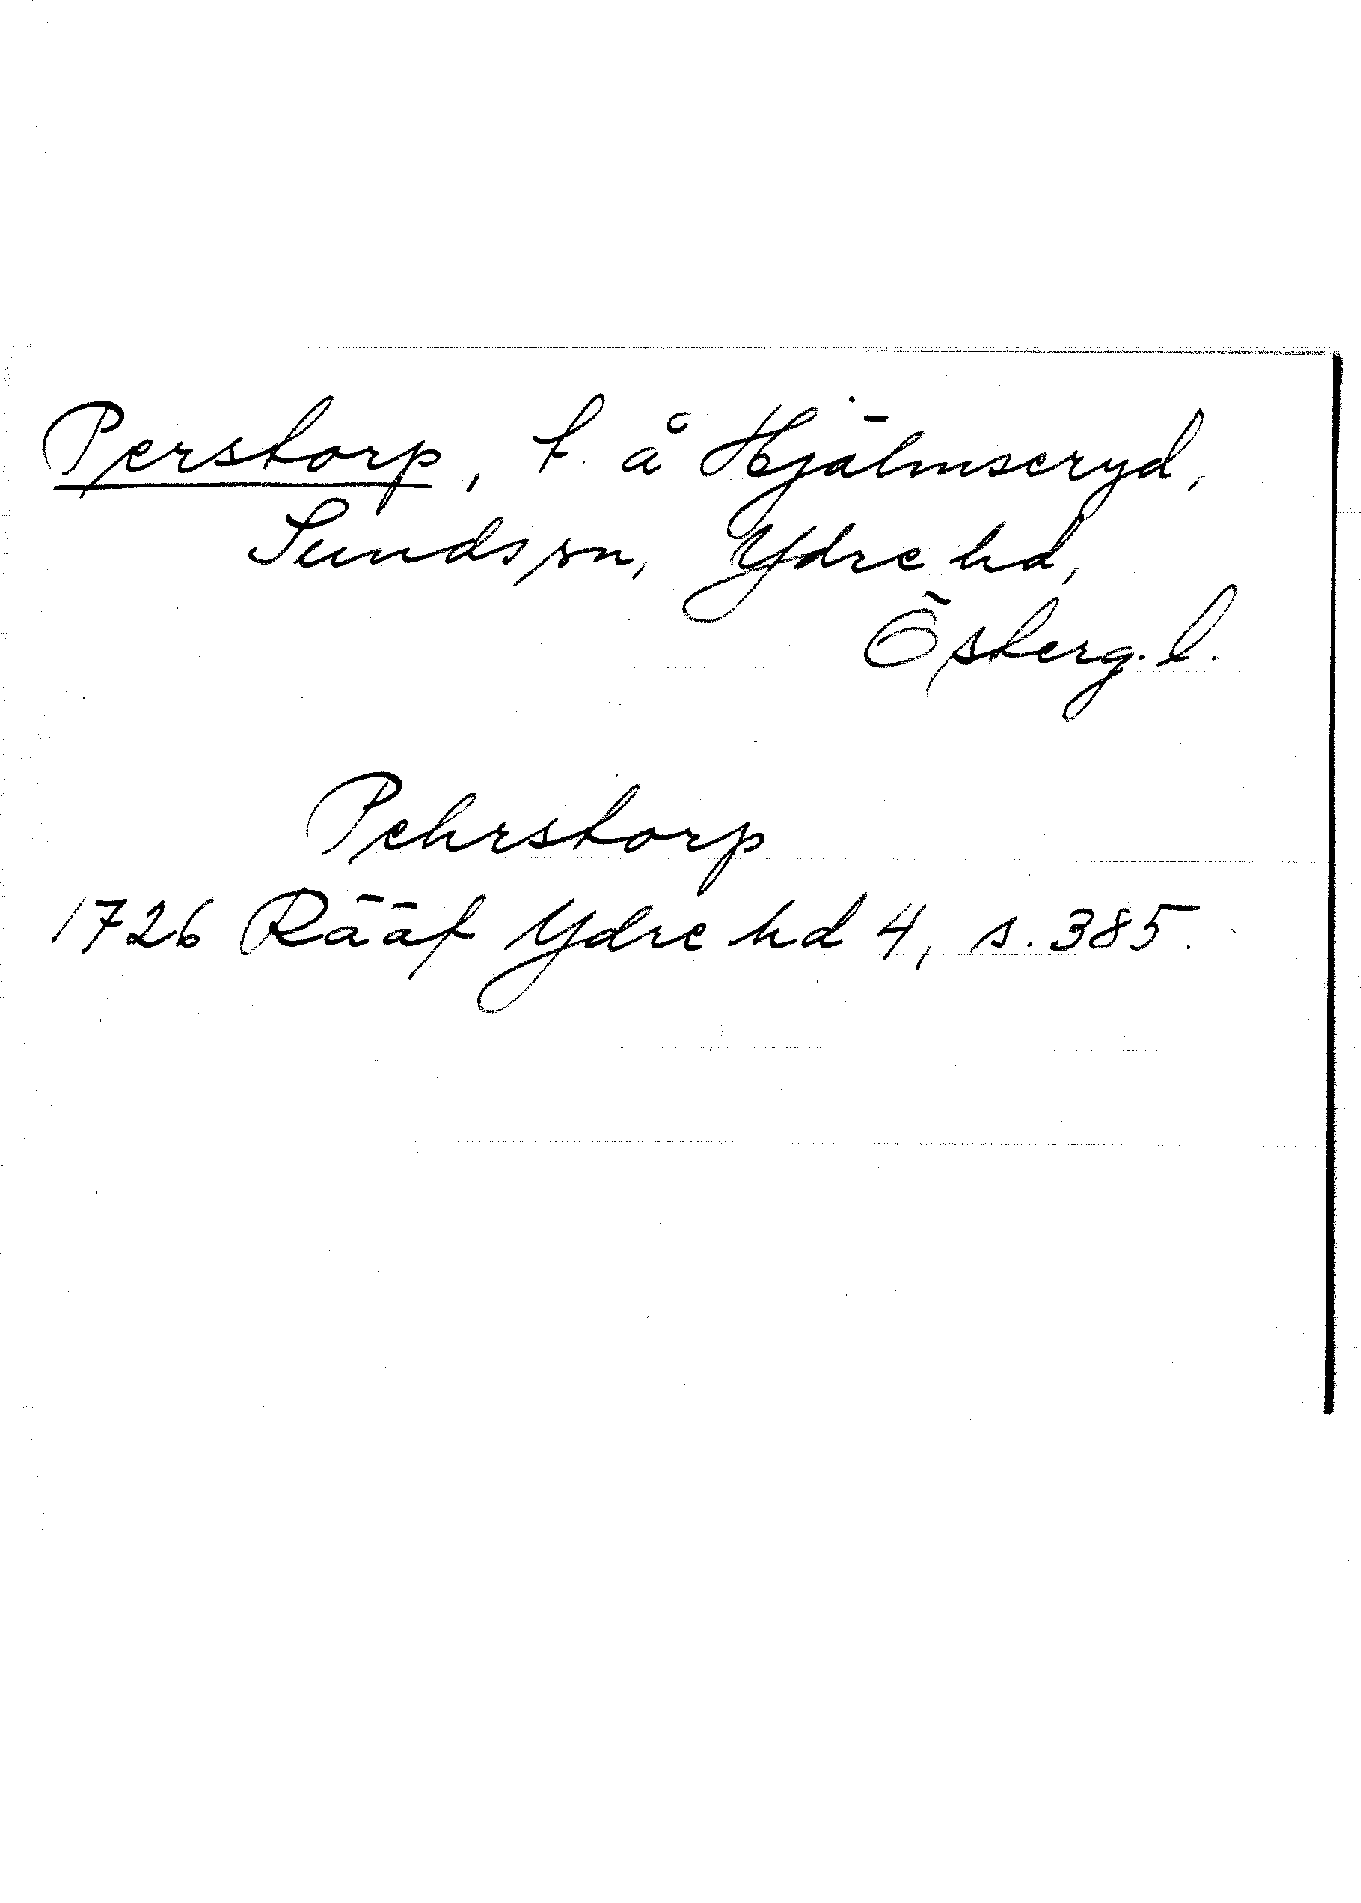 Perstorp, t. å Hjälmseryd,
Sunds sn, Ydre hd,
Österg. l.
Pehrstorp
1726 Rääf Ydre hd 4, s. 385.